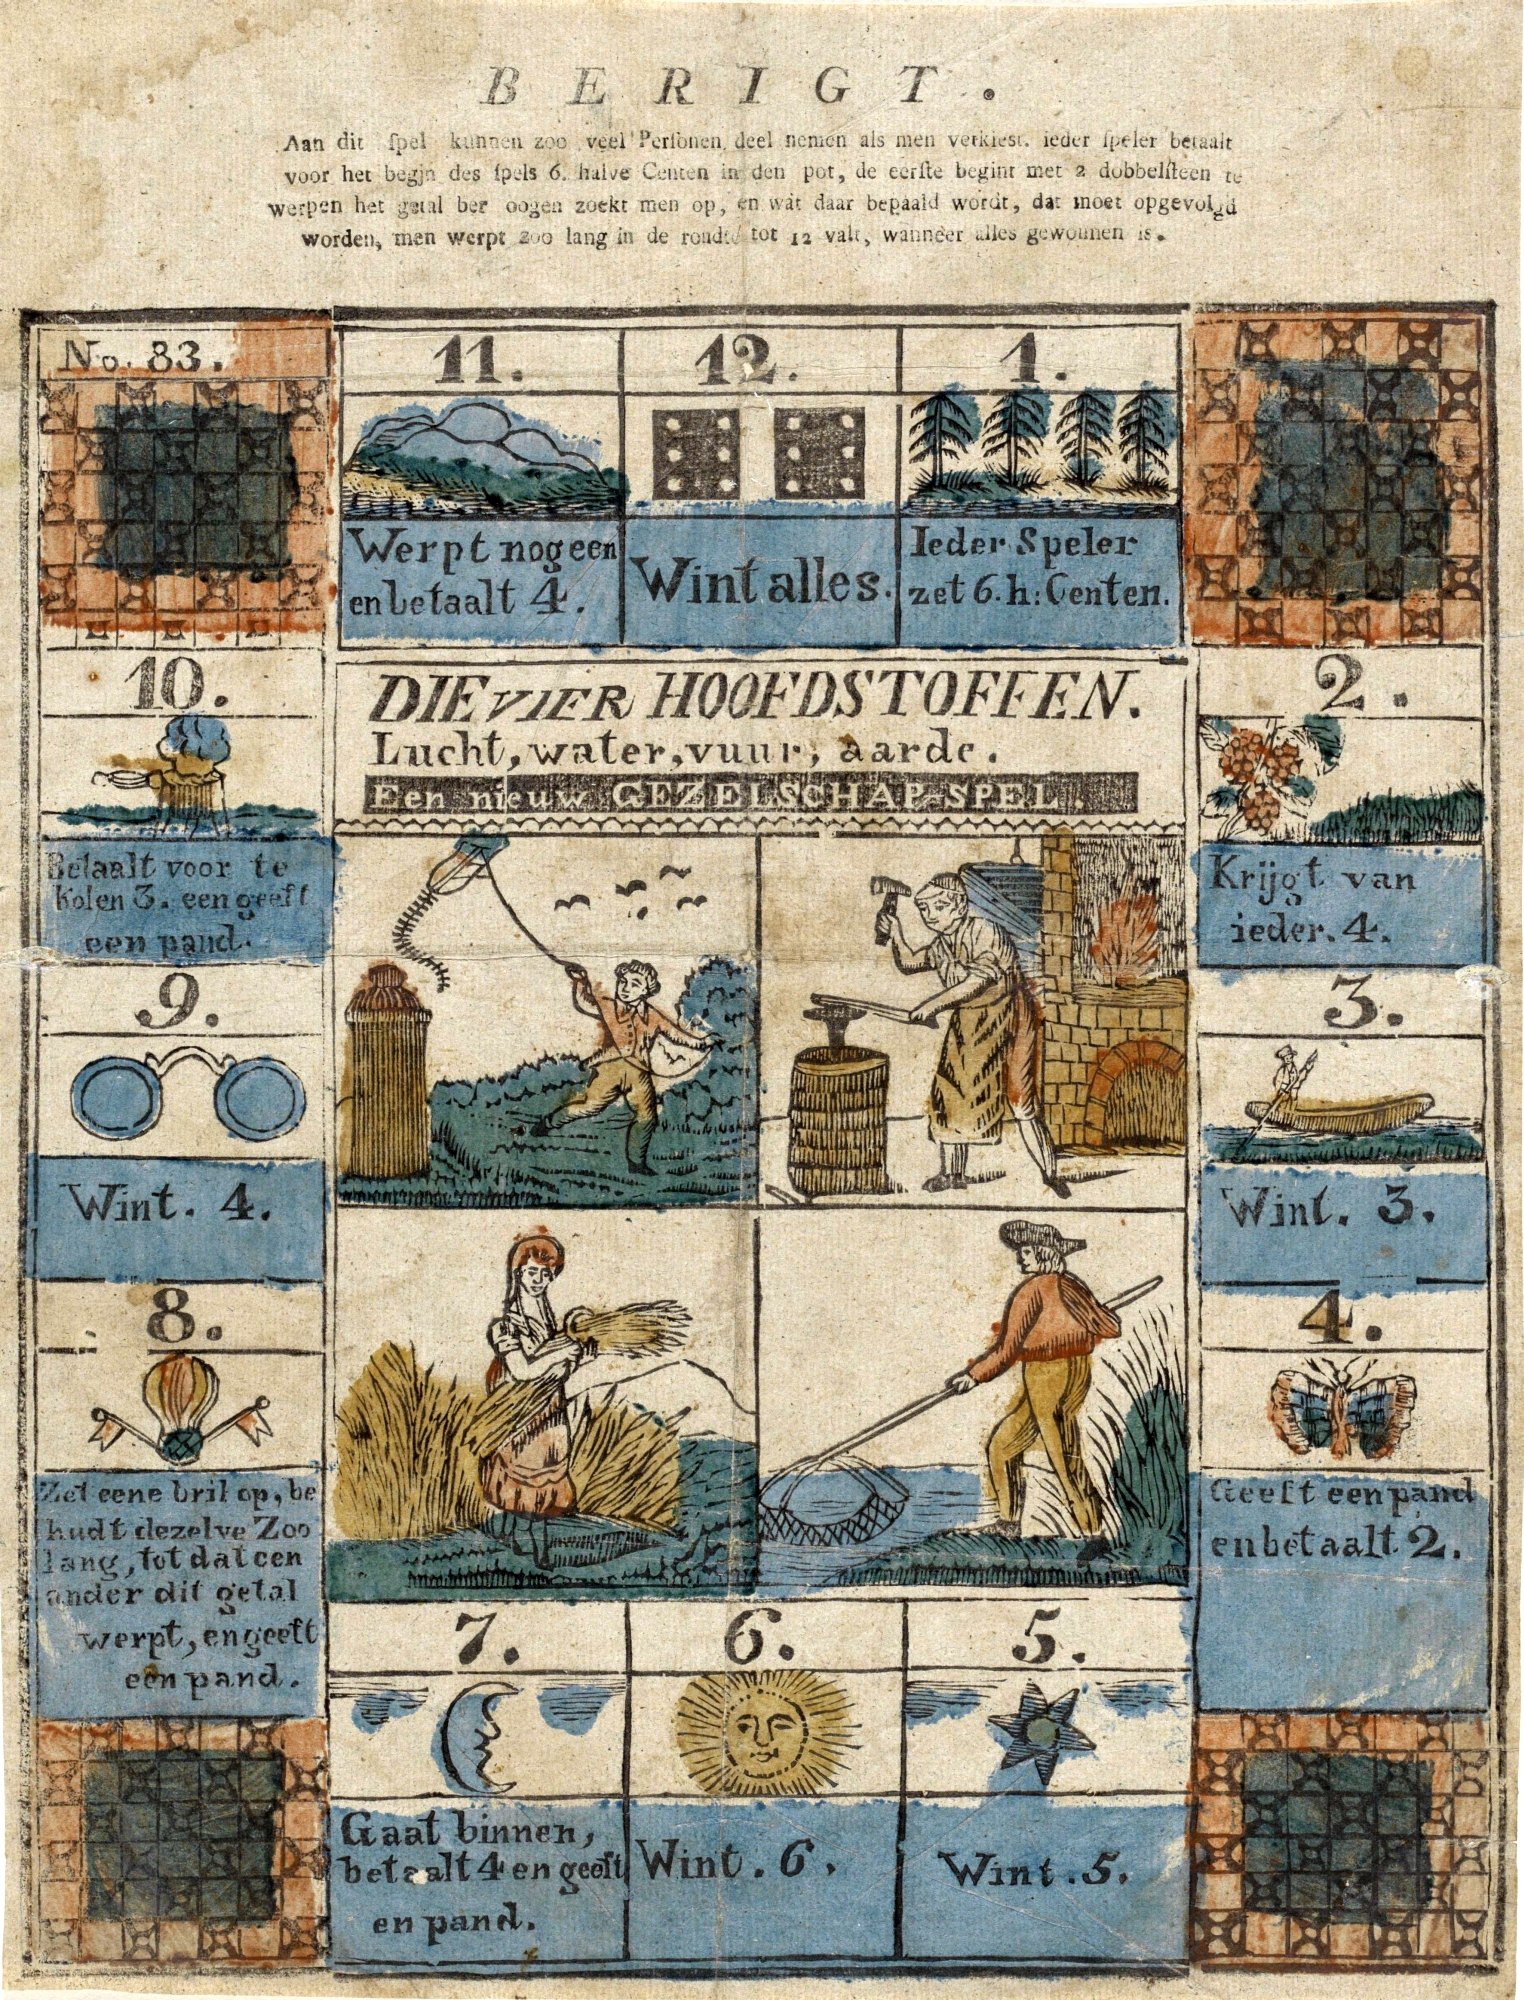 BERIGT.
Aan dit ſpel kunnen zoo veel Perſonen deel nemen als men verkiest. ieder ſpeler betaalt
voor het begjn des ſpels 6. halve Centen in den pot, de eerſte begint met 2 dobbelſteen te
werpen het getal der oogen zoekt men op, en wat daar bepaald wordt, dat moet opgevolgd
worden, men werpt zoo lang in de rondte tot 12 valt, wanneer alles gewonnen is.
No. 83.
11.
Werpt nog een
en betaalt 4.
12.
Wint alles.
1.
Ieder Speler
zet 6. h: Centen.
DIE VIER HOOFDSTOFFEN.
Lucht, water, vuur, aarde.
Een nieuw GEZELSCHAP-SPEL.
2.
Krijgt van
ieder. 4.
3.
Wint. 3.
4.
Geeft een pand
en betaalt 2.
5.
Wint. 5.
6.
Wint. 6.
7.
Gaat binnen,
betaalt 4 en geeft
en pand.
8.
Zet eene bril op, be
hudt dezelve Zoo
lang, tot dat een
ander dit getal
werpt, en geeft
een pand.
9.
Wint. 4.
10.
Betaalt voor te
Kolen 3. een geeft
een pand.